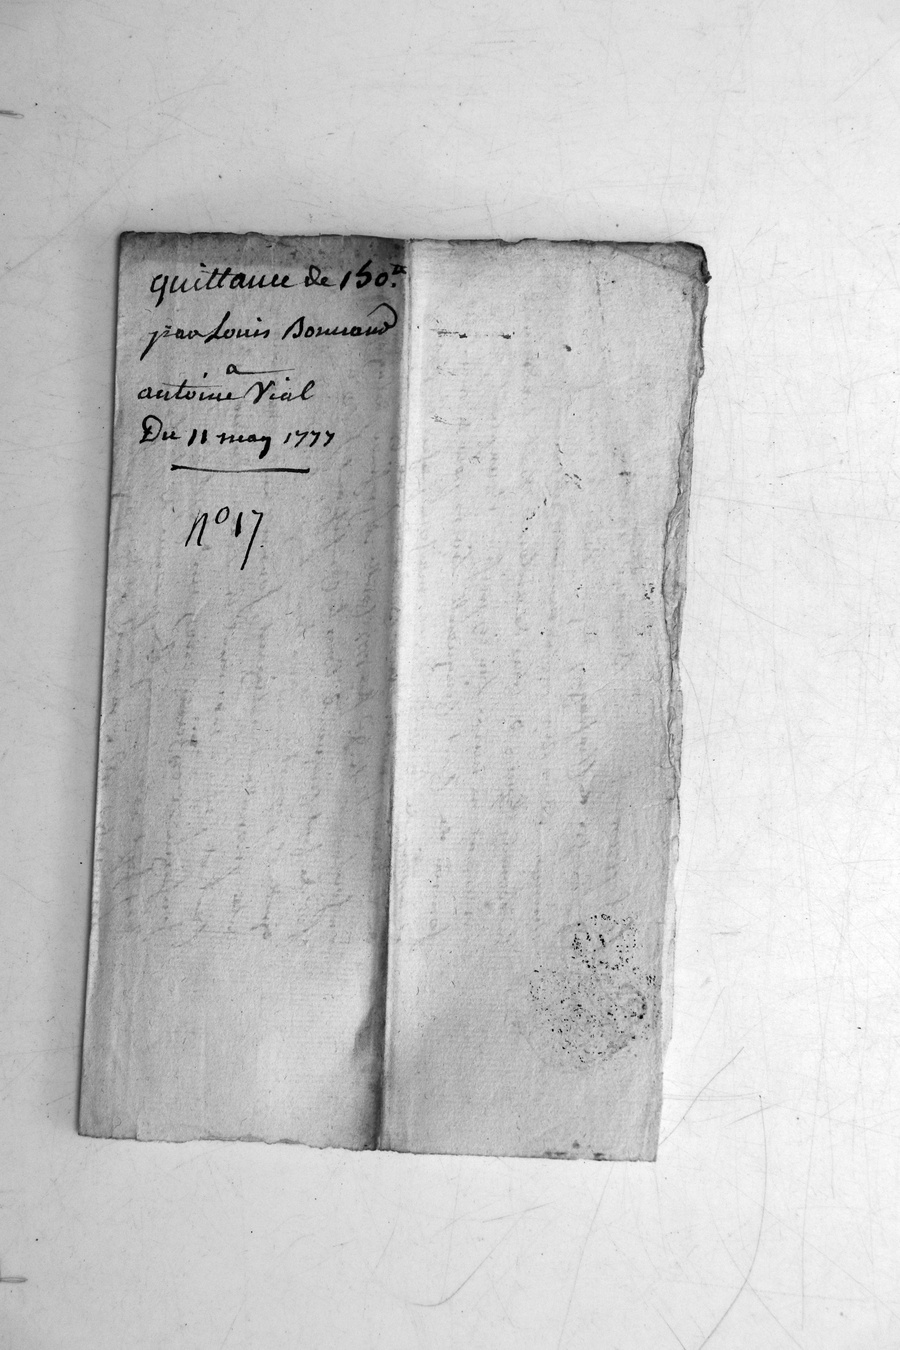 quittance de 150.tt
par Louis Bonnand
a
antoine Vial
Du 11 may 1777
n° 17.